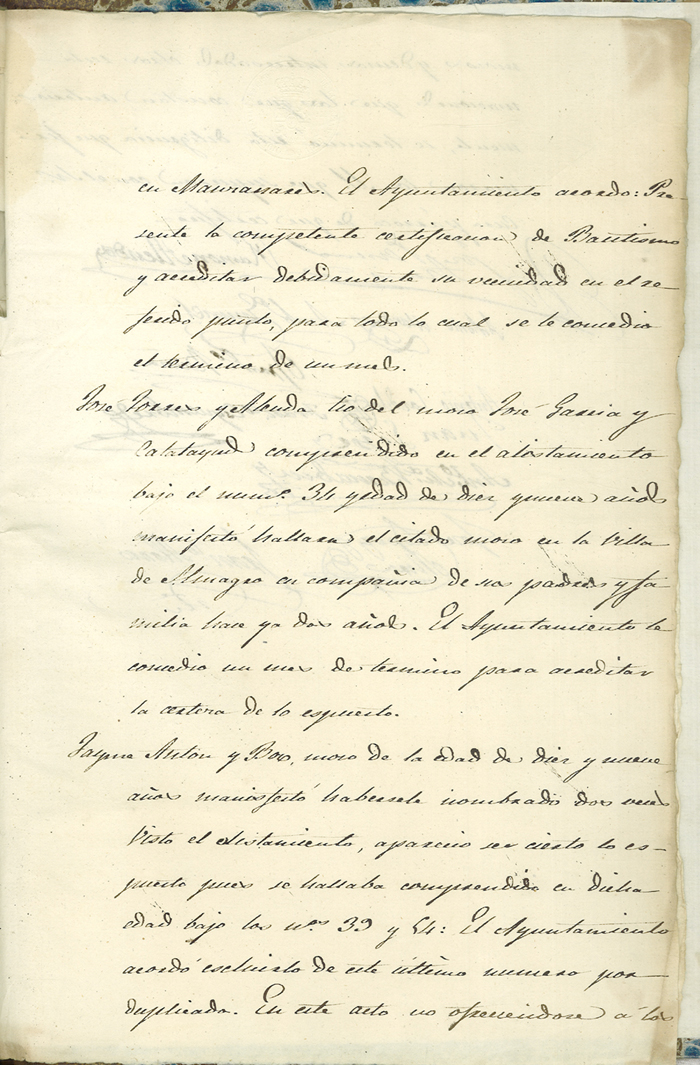 en Manzanares. El Ayuntamiento acordo: Pre-
sente la competente certificacion de Bautismo
y acreditar debidamente su vecindad en el re-
ferido punto, para todo lo cual se le concedio
el termino de un mes.
Jose Torres y Abuda tio del mozo José Garcia y
Calatayud comprendido en el alistamiento
bajo el num.º 34 y edad de diez y nueve años
manifestó hallarse el citado mozo en la Villa
de Almagro en compañia de sus padres y fa-
milia hace ya dos años. El Ayuntamiento le
concedio un mes de termino para acreditar
la certeza de lo espuesto.
Jayme Anton y Boo, mozo de la edad de diez y nueve
años manifestó habersele nombrado dos veces
Visto el alistamiento, aparecio ser cierto lo es-
puesto pues se hallaba comprendido en dicha
edad bajo los n.os 39 y 54: El Ayuntamiento
acordó escluirlo de este último numero por
duplicado. En este acto no ofreciendose á los